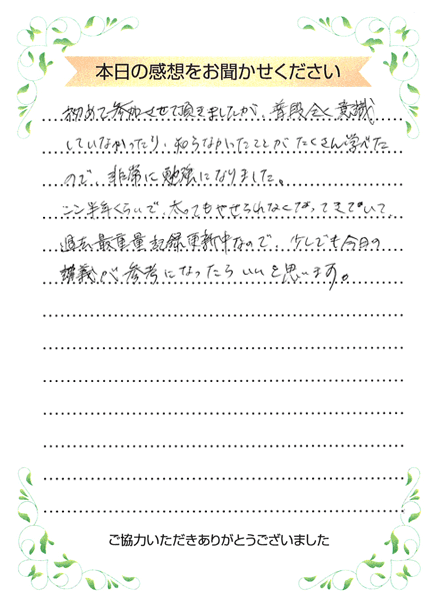 本日の感想をお聞かせください
初めて参加させて頂きましたが、普段全く意識
していなかったり、知らなかったことがたくさん学べた
ので、非常に勉強になりました。
ここ半年くらいで、太ってもやせられなくなってきていて、
過去最重量記録更新中なので、少しでも今日の
講義が参考になったらいいと思います。
ご協力いただきありがとうございました